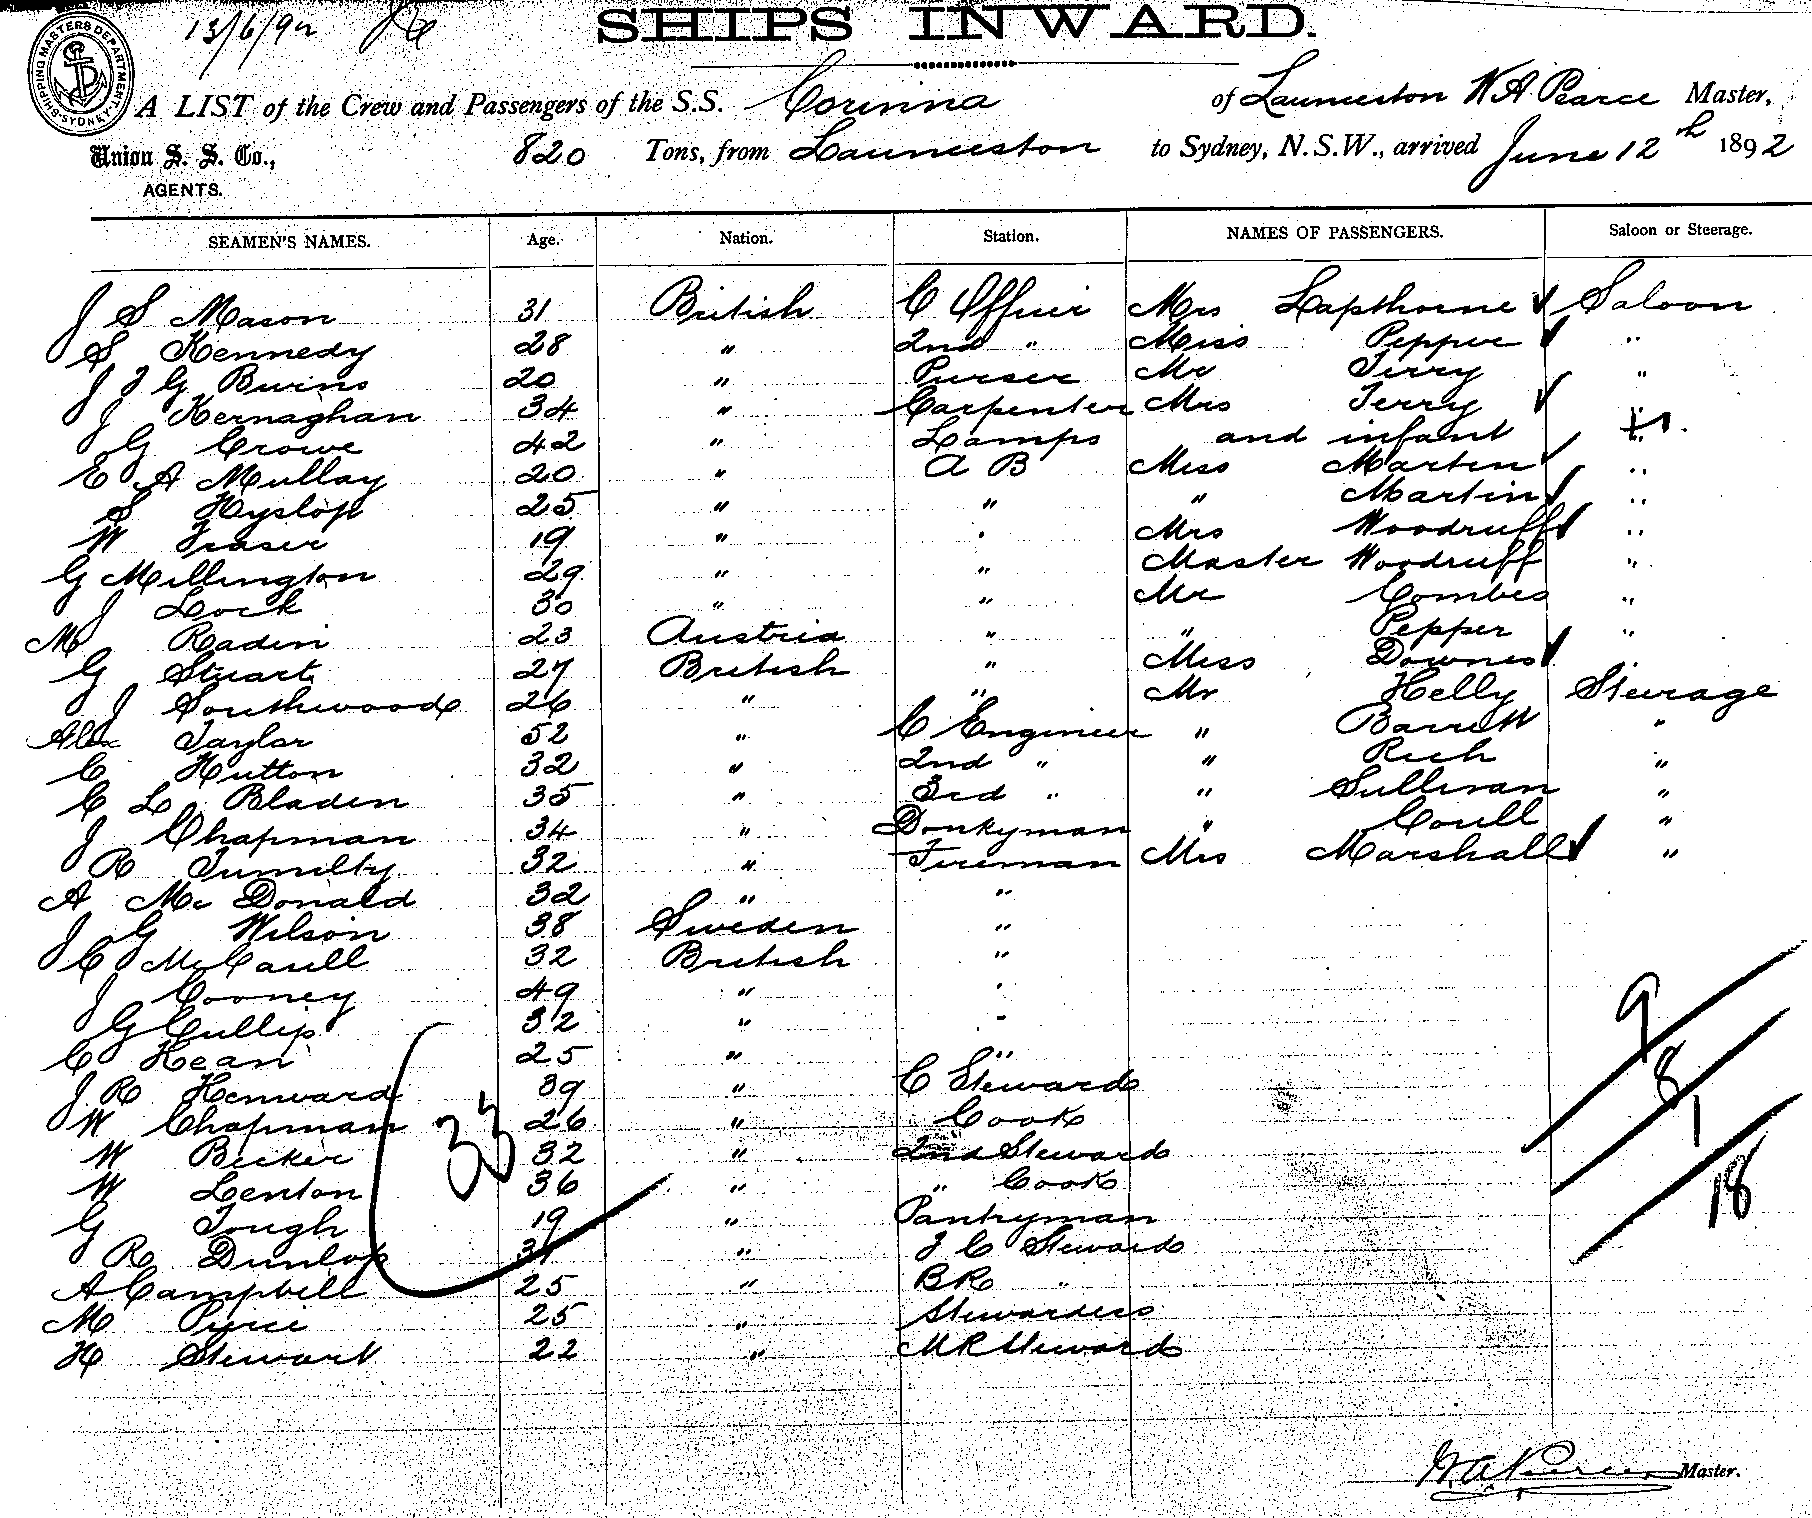 13/6/92
SHIPS INWARD.
SHIPPING MASTERS DEPARTMENT SYDNEY
A LIST of the Crew and Passengers of the S.S. Corinna of Launceston W A Pearce Master,
Union S. S. Co., 820 Tons, from Launceston to Sydney, N.S.W., arrived June 12th 1892
AGENTS.
SEAMEN'S NAMES. Age. Nation. Station. NAMES OF PASSENGERS. Saloon or Steerage.
J S Mason 31 British C Officer Mrs Lapthorne Saloon
S Kennedy 28 " 2nd " Miss Pepper "
J F G Burns 20 " Purser Mr Terry "
J Kernaghan 34 " Carpenter Mrs Terry
G Crowe 42 " Lamps and infant
E A Mullay 20 " A B Miss Martin "
S Hyslop 25 " " " Martin "
W Fraser 19 " " Mrs Woodruff "
G Millington 29 " " Master Woodruff "
J Lock 30 " " Mr Combes "
M Radin 23 Austria " " Pepper "
G Stuart 27 British " Miss Downes "
J Southwood 26 " " Mr Helly Steerage
Alex Taylor 52 " C Engineer " Barrett "
C Hutton 32 " 2nd " " Rich "
C L Bladen 35 " 3rd " " Sullivan "
J Chapman 34 " Donkyman " Coull "
R Tumilty 32 " Fireman Mrs Marshall "
A Mc Donald 32 " "
J G Wilson 38 Sweden "
C McCaull 32 British "
J Cooney 49 " "
G Cullip 32 " "
C Kean 25 " "
J R Henward 39 " C Steward
W Chapman 26 " Cook
W Becker 32 " 2nd Steward
W Lenton 36 " " Cook
G Tough 19 " Pantryman
R Dunlop " F C Steward
A Campbell 25 " BR "
M Pierce 25 " Stewardess
H Stewart 22 " MR Steward
33
9
8
1
18
W A Pearce Master.